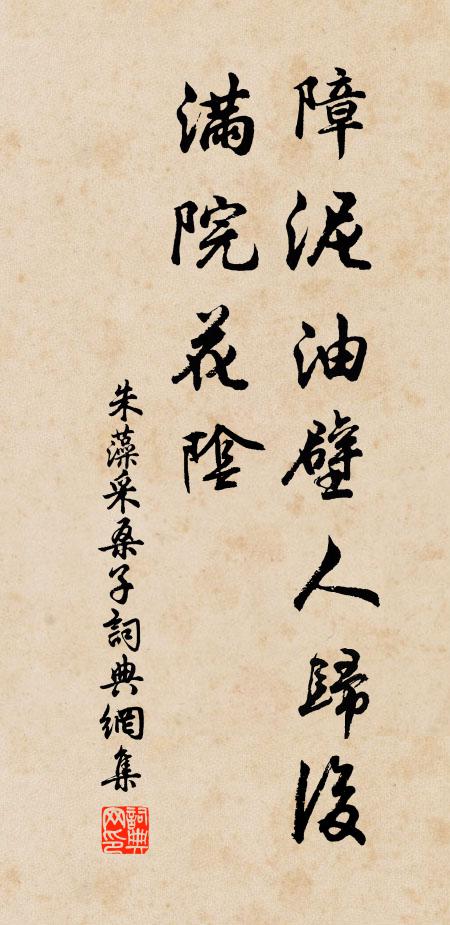 障泥油壁人歸後
滿院花陰
朱藻采桑子詞典網集
詞典网印